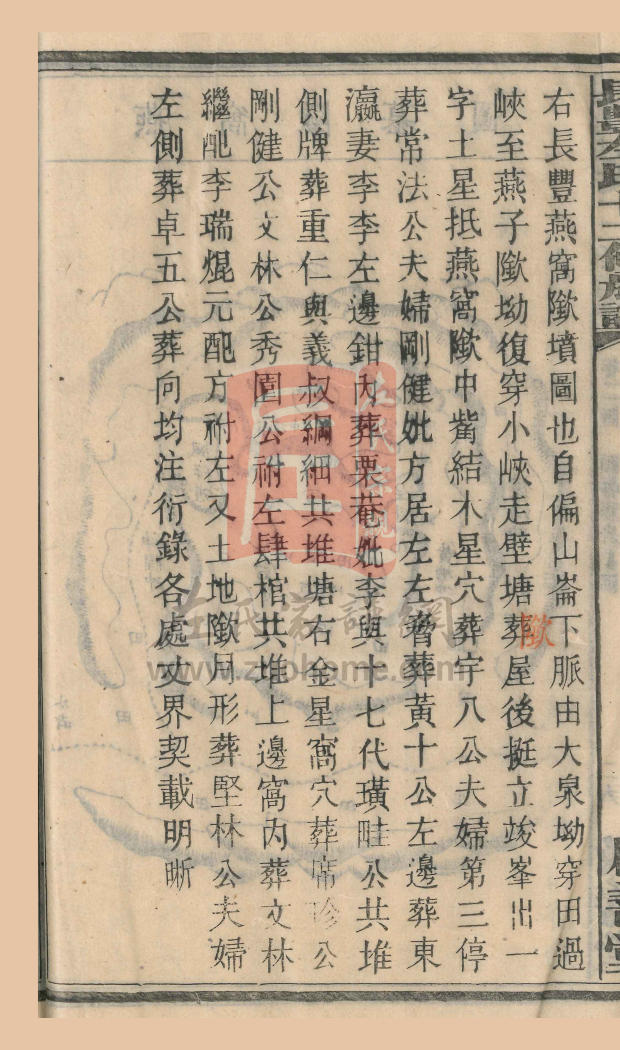 右長豐燕窩隞墳圖也自偏山崙下脈由大泉坳穿田過
峽至燕子隞坳復穿小峽走壁塘葬屋後挺立竣峯出一
字土星抵燕窩隞中觜結木星穴葬宇八公夫婦第三停
葬常法公夫婦剛健妣方居左左脅葬黃十公左邊葬東
瀛妻李李左邊鉗內葬栗菴妣李與十七代璜畦公共堆
側牌葬重仁與義叔綱細共堆塘右金星窩穴葬席珍公
剛健公文林公秀園公祔左肆棺共堆上邊窩內葬文林
繼配李瑞焜元配方祔左又土地隞月形葬堅林公夫婦
左側葬卓五公葬向均注衍錄各處丈界契載明晰
左氏家譜網
www.zuohome.com